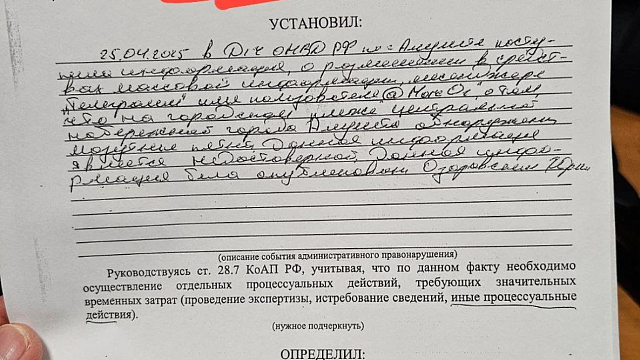 УСТАНОВИЛ:
25.04.2025 в ДЧ ОМВД РФ по г. Алуште посту-
пила информация, о размещении в средст-
вах массовой информации, мессенджере
"Телеграмм" имя пользователя о том,
что на городском пляже центральной
набережной города Алушта обнаружены
мазутные пятна. Данная информация
является недостоверной. Данная инфор-
мация была опубликована Озаровским
(описание события административного правонарушения)
Руководствуясь ст. 28.7 КоАП РФ, учитывая, что по данному факту необходимо
осуществление отдельных процессуальных действий, требующих значительных
временных затрат (проведение экспертизы, истребование сведений, иные процессуальные
действия).
(нужное подчеркнуть)
ОПРЕДЕЛИЛ: